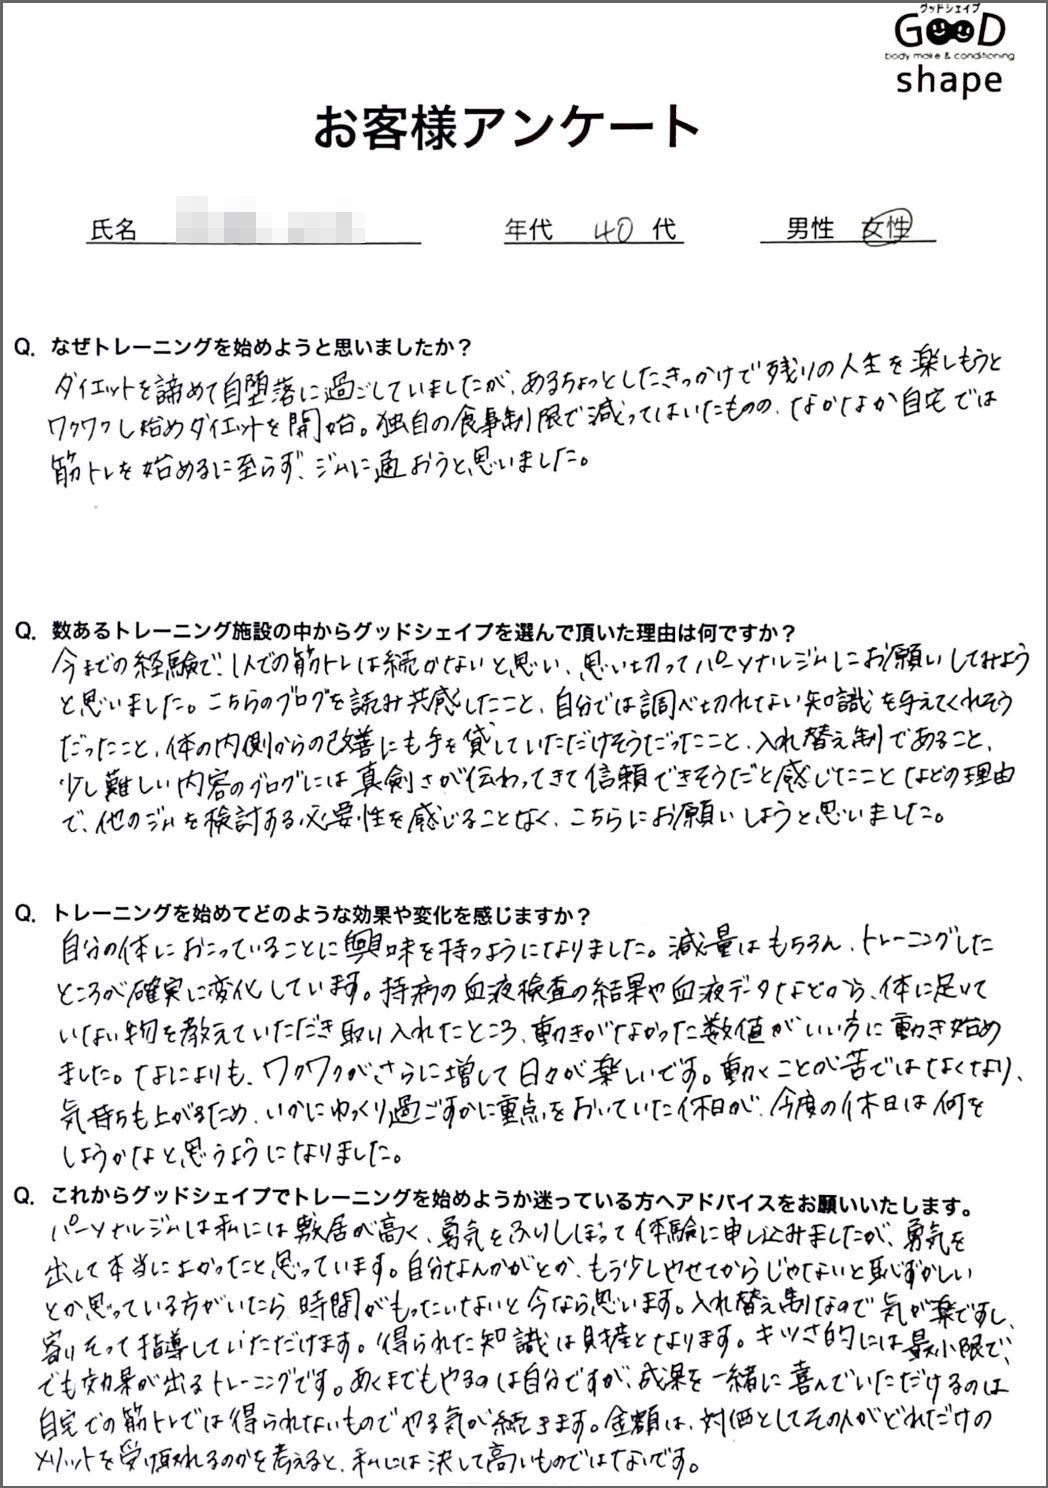 グッドシェイプ
GOOD
body make & conditioning
shape
お客様アンケート
氏名 年代 40 代 男性 女性
Q. なぜトレーニングを始めようと思いましたか？
ダイエットを諦めて自堕落に過ごしていましたが、あるちょっとしたきっかけで残りの人生を楽しもうと
ワクワクし始めダイエットを開始。独自の食事制限で減ってはいたものの、なかなか自宅では
筋トレを始めるに至らず、ジムに通おうと思いました。
Q. 数あるトレーニング施設の中からグッドシェイプを選んで頂いた理由は何ですか？
今までの経験で、1人での筋トレは続かないと思い、思い切ってパーソナルジムにお願いしてみよう
と思いました。こちらのブログを読み共感したこと、自分では調べ切れない知識を与えてくれそう
だったこと、体の内側からの改善にも手を貸していただけそうだったこと、入れ替え制であること、
少し難しい内容のブログには真剣さが伝わってきて信頼できそうだと感じたことなどの理由
で、他のジムを検討する必要性を感じることなく、こちらにお願いしようと思いました。
Q. トレーニングを始めてどのような効果や変化を感じますか？
自分の体におこっていることに興味を持つようになりました。減量はもちろん、トレーニングした
ところが確実に変化しています。持病の血液検査の結果や血液データなどから、体に足りて
いない物を教えていただき取り入れたところ、動きがなかった数値がいい方に動き始め
ました。なによりも、ワクワクがさらに増して日々が楽しいです。動くことが苦ではなくなり、
気持ちも上がるため、いかにゆっくり過ごすかに重点をおいていた休日が、今度の休日は何を
しようかなと思うようになりました。
Q. これからグッドシェイプでトレーニングを始めようか迷っている方へアドバイスをお願いいたします。
パーソナルジムは私には敷居が高く、勇気をふりしぼって体験に申し込みましたが、勇気を
出して本当によかったと思っています。自分なんかがとか、もう少しやせてからじゃないと恥ずかしい
とか思っている方がいたら 時間がもったいないと今なら思います。入れ替え制なので気が楽ですし、
寄りそって指導していただけます。得られた知識は財産となります。キツさ的には最小限で、
でも効果が出るトレーニングです。あくまでもやるのは自分ですが、成果を一緒に喜んでいただけるのは
自宅での筋トレでは得られないものでやる気が続きます。金額は、対価としてその人がどれだけの
メリットを受け取れるのかを考えると、私には決して高いものではないです。